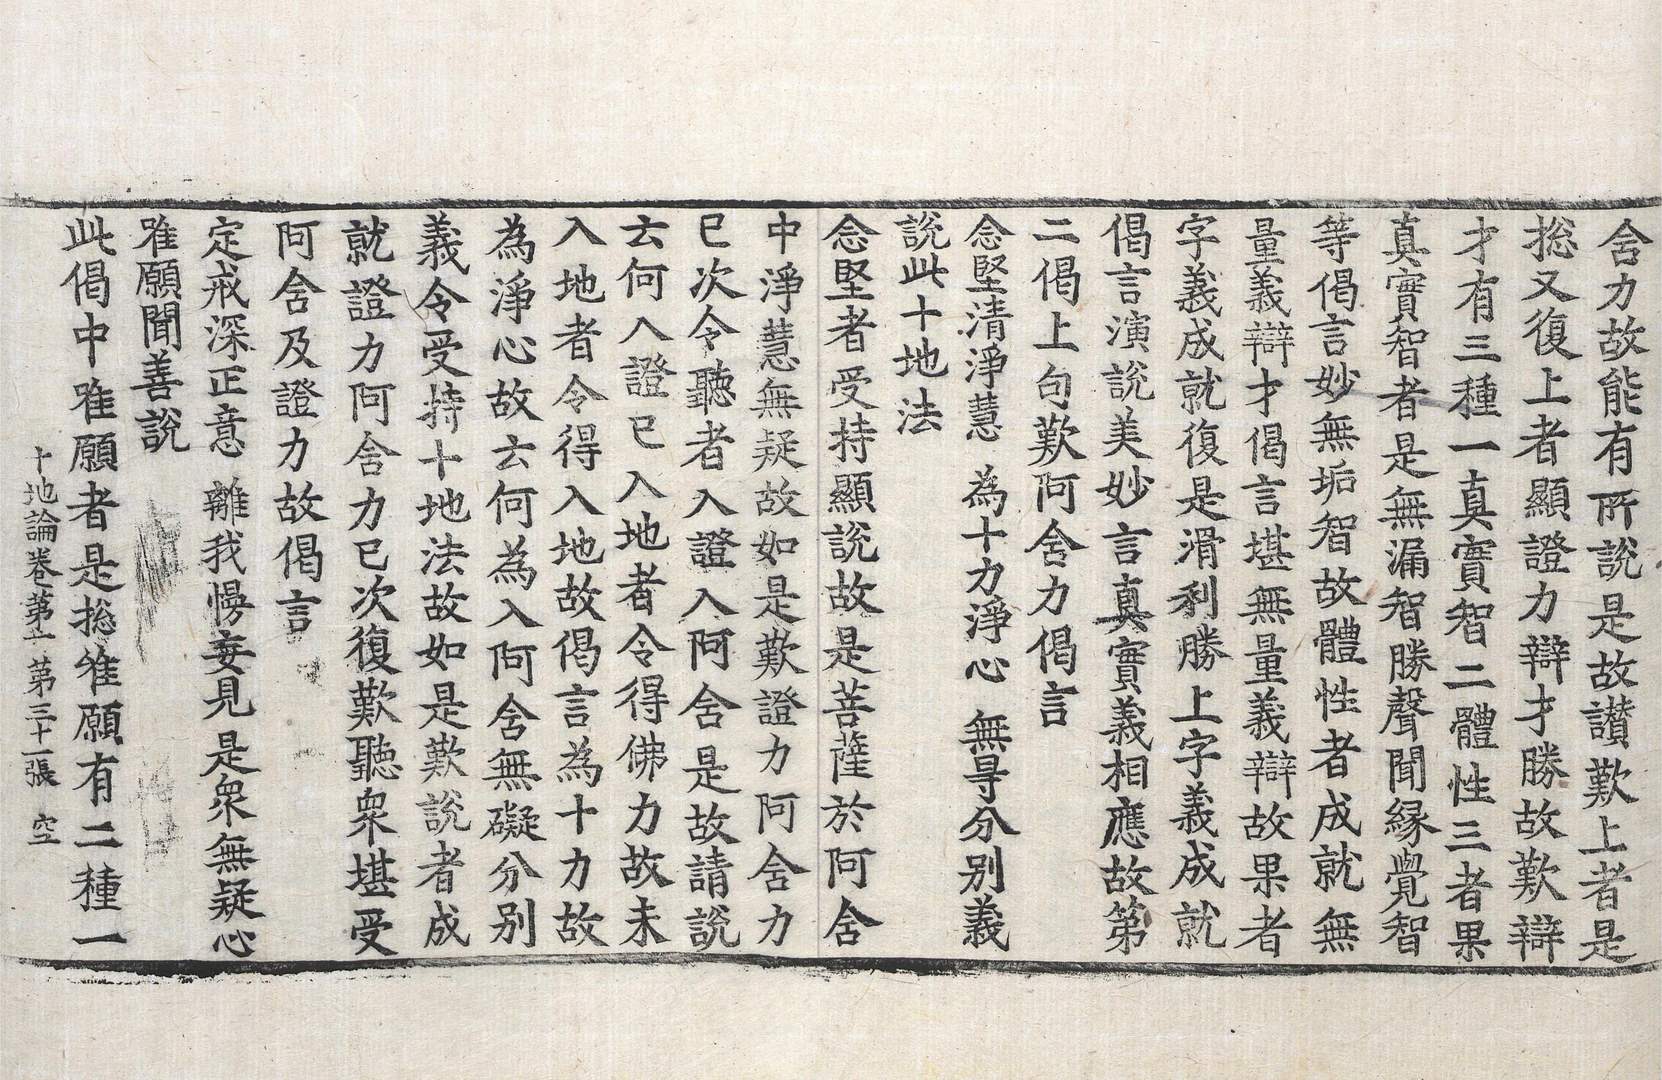 舍力故能有所說是故讃歎上者是
捴又復上者顯證力辯才勝故歎辯
才有三種一真實智二體性三者果
真實智者是無漏智勝聲聞緣覺智
等偈言妙無垢智故體性者成就無
量義辯才偈言堪無量義辯故果者
字義成就復是滑利勝上字義成就
偈言演說美妙言真實義相應故第
二偈上句歎阿舍力偈言
念堅清淨慧 為十力淨心 無㝵分別義
說此十地法
念堅者受持顯說故是菩薩於阿舍
中淨慧無疑故如是歎證力阿舍力
已次令聽者入證入阿舍是故請說
云何入證已入地者令得佛力故未
入地者令得入地故偈言為十力故
為淨心故云何為入阿舍無礙分別
義令受持十地法故如是歎說者成
就證力阿舍力已次復歎聽衆堪受
阿舍及證力故偈言
定戒深正意 離我慢妄見 是衆無疑心
唯願聞善說
此偈中唯願者是捴唯願有二種一
十地論卷第一 第三十一張 空